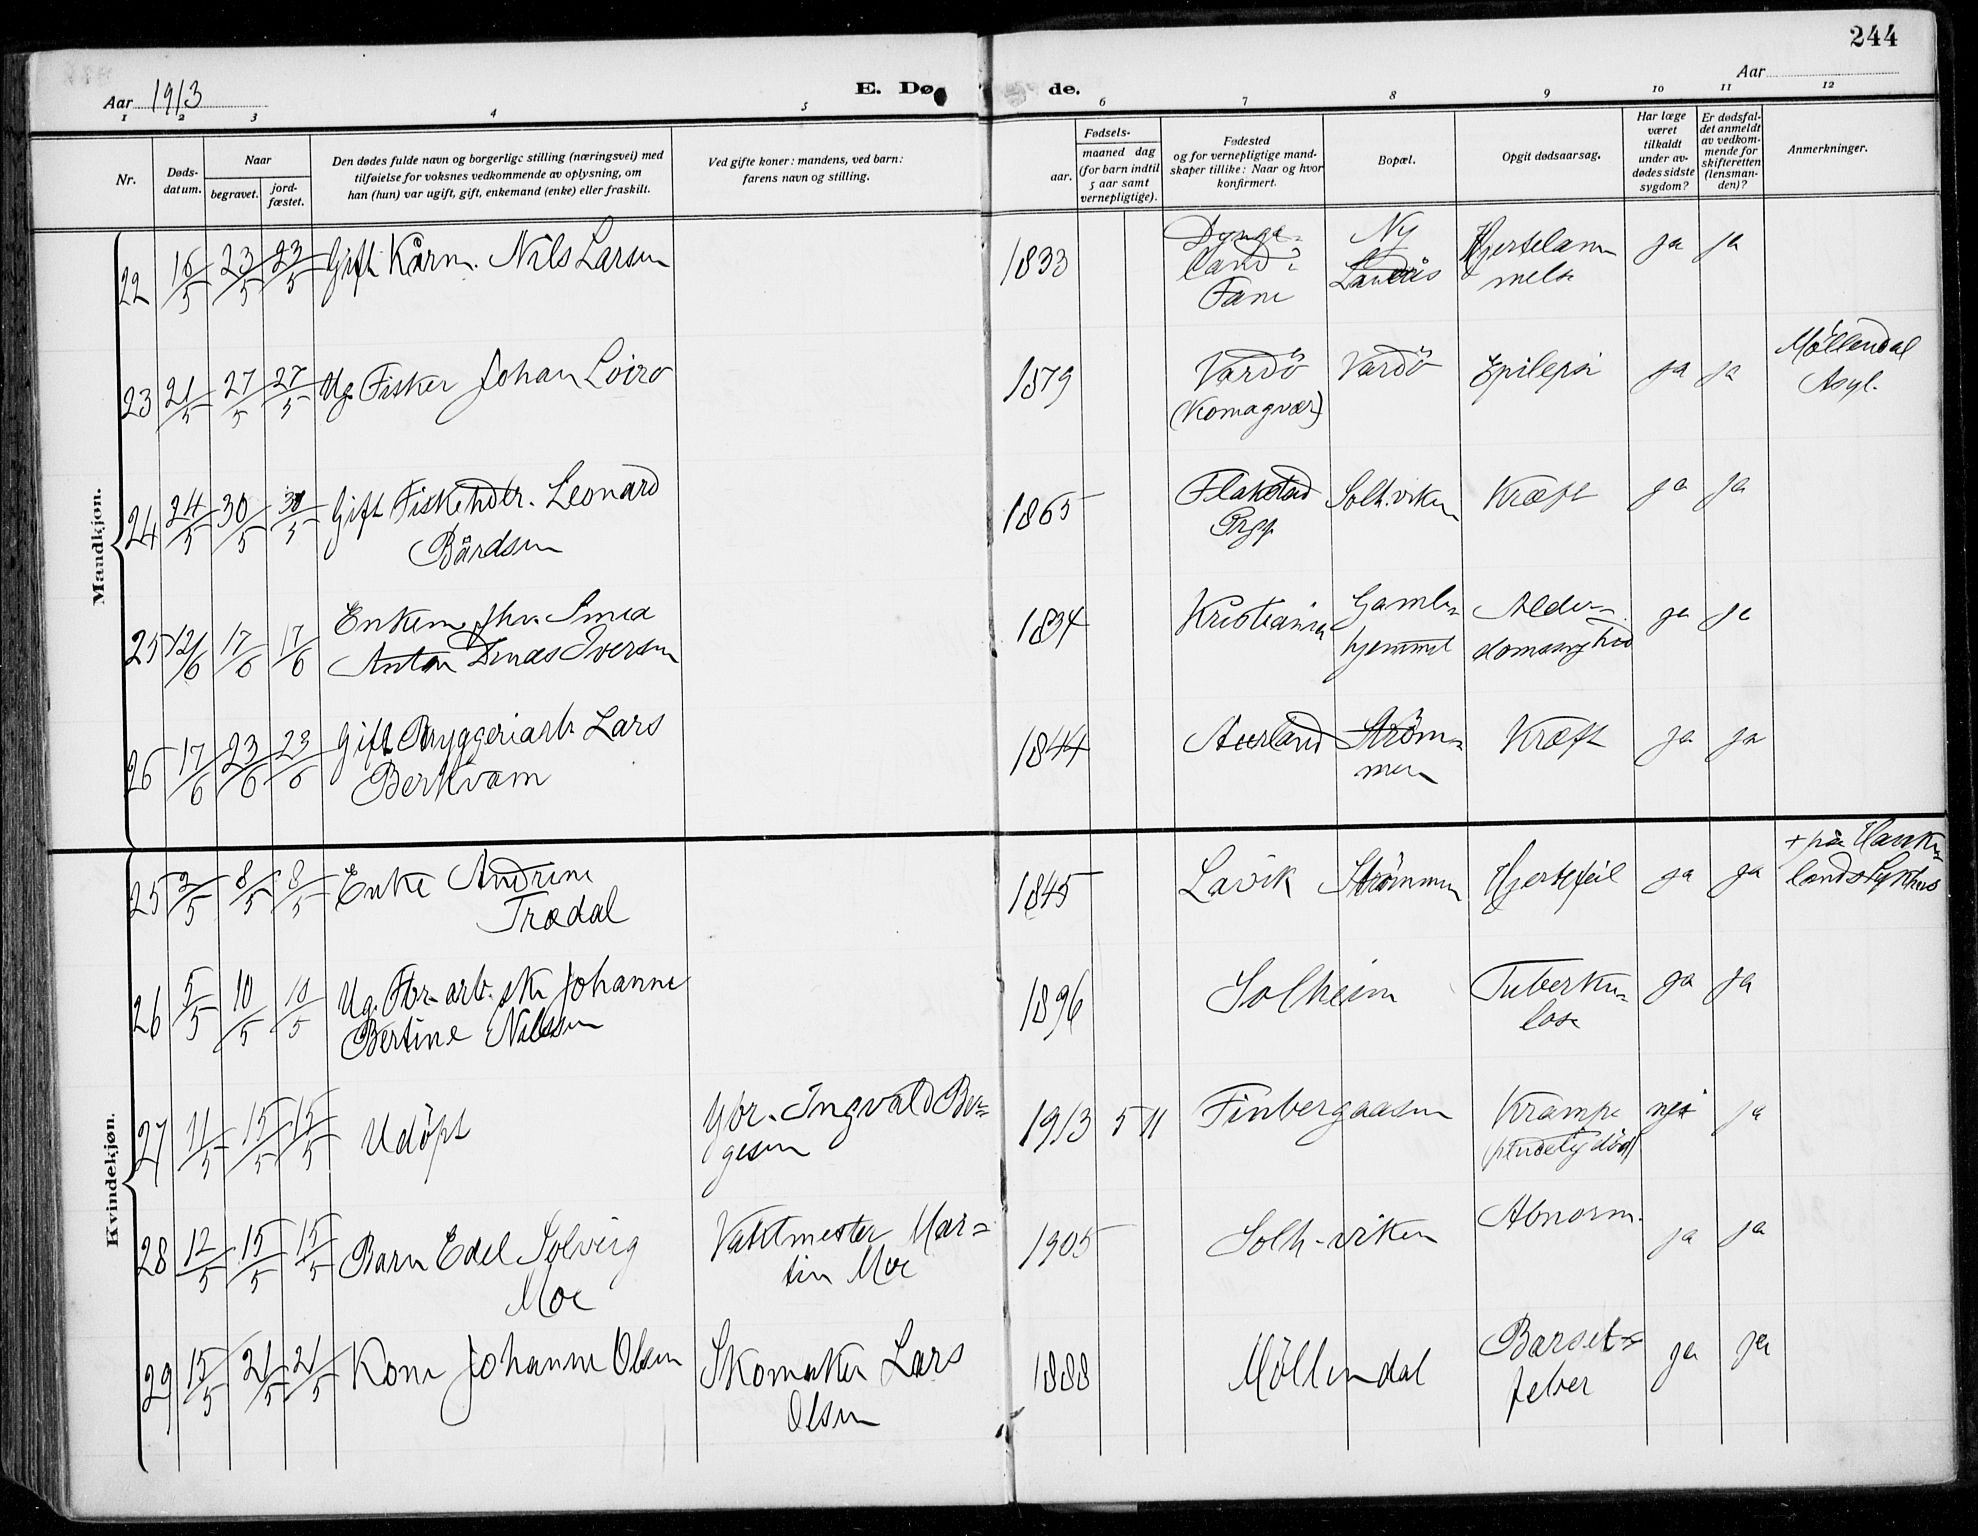 244
Aar 1913
E. Dø de.
Aar
1 2 3 4 5 6 7 8 9 10 11 12
Nr.
Døds-
datum.
Naar
begravet.
jord-
fæstet.
Den dødes fulde navn og borgerlige stilling (næringsvei) med
tilføielse for voksnes vedkommende av oplysning, om
han (hun) var ugift, gift, enkemand (enke) eller fraskilt.
Ved gifte koner: mandens, ved barn:
farens navn og stilling.
Fødsels-
aar.
maaned dag
(for barn indtil
5 aar samt
vernepligtige).
Fødested
og for vernepligtige mand-
skaper tillike: Naar og hvor
konfirmert.
Bopæl.
Opgit dødsaarsag.
Har læge
været
tilkaldt
under av-
dødes sidste
sygdom?
Er dødsfal-
det anmeldt
av vedkom-
mende for
skifteretten
(lensman-
den)?
Anmerkninger.
Mandkjøn.
22 16/5 23/5 23/5 Gift Kårm. Nils Larsen 1833 Ny Hjertelam= ja ja
land i Landås melse
Fane
23 21/5 27/5 27/5 Ug. Fisker Johan Loiro 1879 Vardö Vardö Epilepsi ja ja Møllendal
(Komagvær) Asyl.
24 24/5 30/5 30/5 Gift Fiskehdlr. Leonard 1865 Flakstad Solh.viken Kræft ja ja
Bårdsen Prgj.
25 12/6 17/6 17/6 Enkem. fhv. Smed 1834 Kristiania Gamle= Alder= ja ja
Anton Dines Iversen hjemmet domssvaghed
26 17/6 23/6 23/6 Gift Bryggeriarb. Lars 1844 Aurland Ström= Kræft ja ja
Berkvam men
Kvindekjøn.
25 2/5 8/5 8/5 Enke Andrine 1845 Lavik Strömmen Hjertefeil ja ja + på Hauke=
Trædal lands Sykhus
26 5/5 10/5 10/5 Ug. Fbr-arb.ske Johanne 1896 Solheim Tuberku= ja ja
Bertine Nilssen lose
27 11/5 15/5 15/5 Udöpt Gbr. Ingvald Bør= 1913 5 11 Finbergaasen Krampe nei ja
gesen (pludselig död)
28 12/5 15/5 15/5 Barn Edel Solveig Vaktmester Mar= 1905 Solh-viken Abnorm. ja ja
Moe tin Moe
29 15/5 21/5 21/5 Kone Johanne Olsen Skomaker Lars 1888 Møllendal Barsel= ja ja
Olsen feber